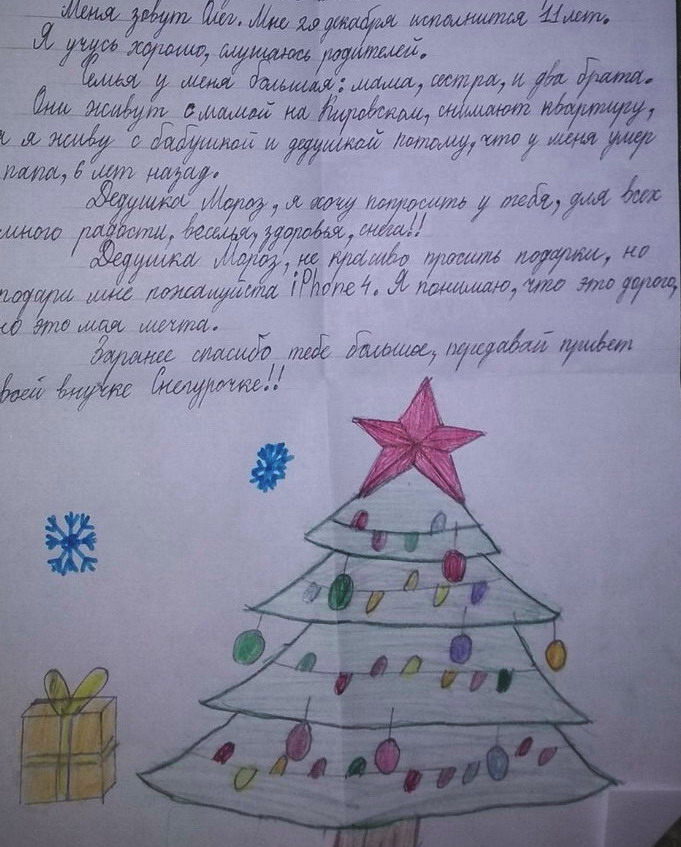 Меня зовут Олег. Мне 29 декабря исполнится 11 лет.
Я учусь хорошо, слушаюсь родителей.
Семья у меня большая: мама, сестра, и два брата.
Они живут с мамой на Кировском, снимают квартиру,
а я живу с бабушкой и дедушкой потому, что у меня умер
папа, 6 лет назад.
Дедушка Мороз, я хочу попросить у тебя, для всех
много радости, веселья, здоровья, снега!!
Дедушка Мороз, не красиво просить подарки, но
подари мне пожалуйста iPhone 4. Я понимаю, что это дорого,
но это моя мечта.
Заранее спасибо тебе большое, передавай привет
воей внучке Снегурочке!!